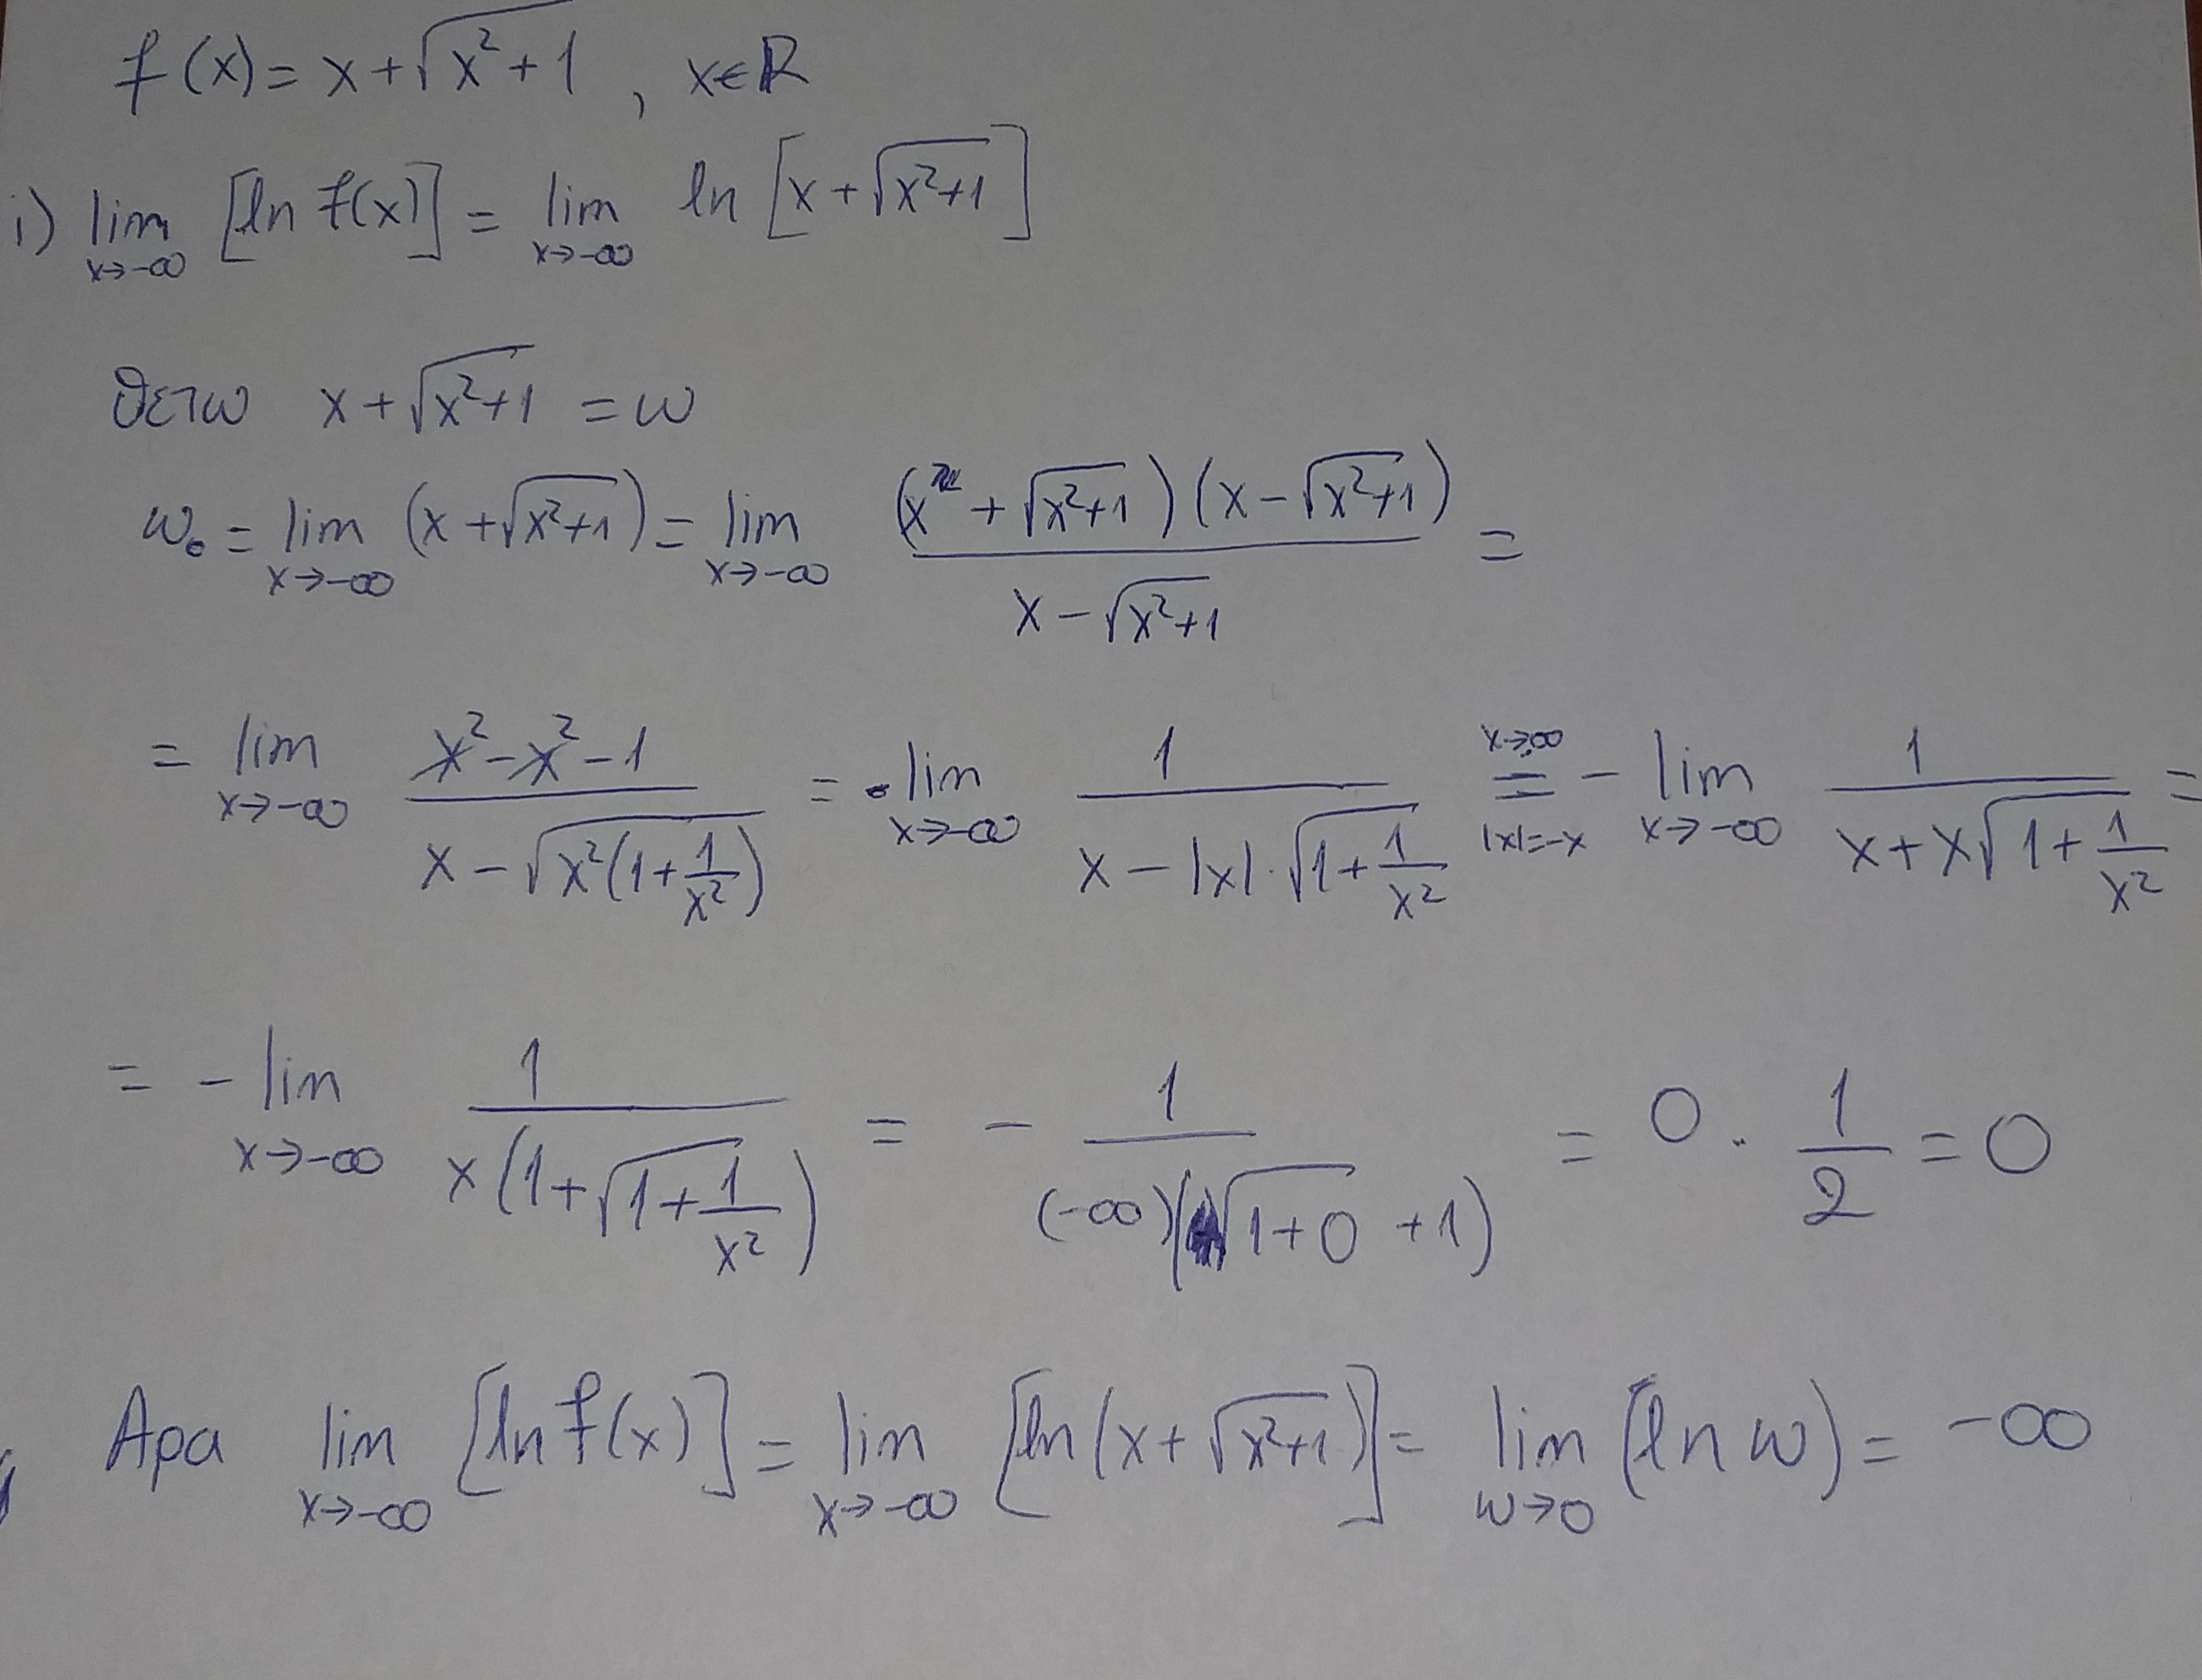 f(x) = x + √(x² + 1) , x ∈ R
i) lim_{x→-∞} [ln f(x)] = lim_{x→-∞} ln [x + √(x²+1)]
θετω x + √(x²+1) = ω
ω₀ = lim_{x→-∞} (x + √(x²+1)) = lim_{x→-∞} ((x + √(x²+1))(x - √(x²+1)))/(x - √(x²+1)) =
= lim_{x→-∞} (x² - x² - 1)/(x - √(x²(1 + 1/x²))) = - lim_{x→-∞} 1/(x - |x|·√(1 + 1/x²)) =^{x→∞}_{|x|=-x} - lim_{x→-∞} 1/(x + x√(1 + 1/x²)) =
= - lim_{x→-∞} 1/(x(1 + √(1 + 1/x²))) = - 1/((-∞)(√(1+0) + 1)) = 0 · 1/2 = 0
Αρα lim_{x→-∞} [ln f(x)] = lim_{x→-∞} [ln(x + √(x²+1))] = lim_{ω→0} (ln ω) = -∞